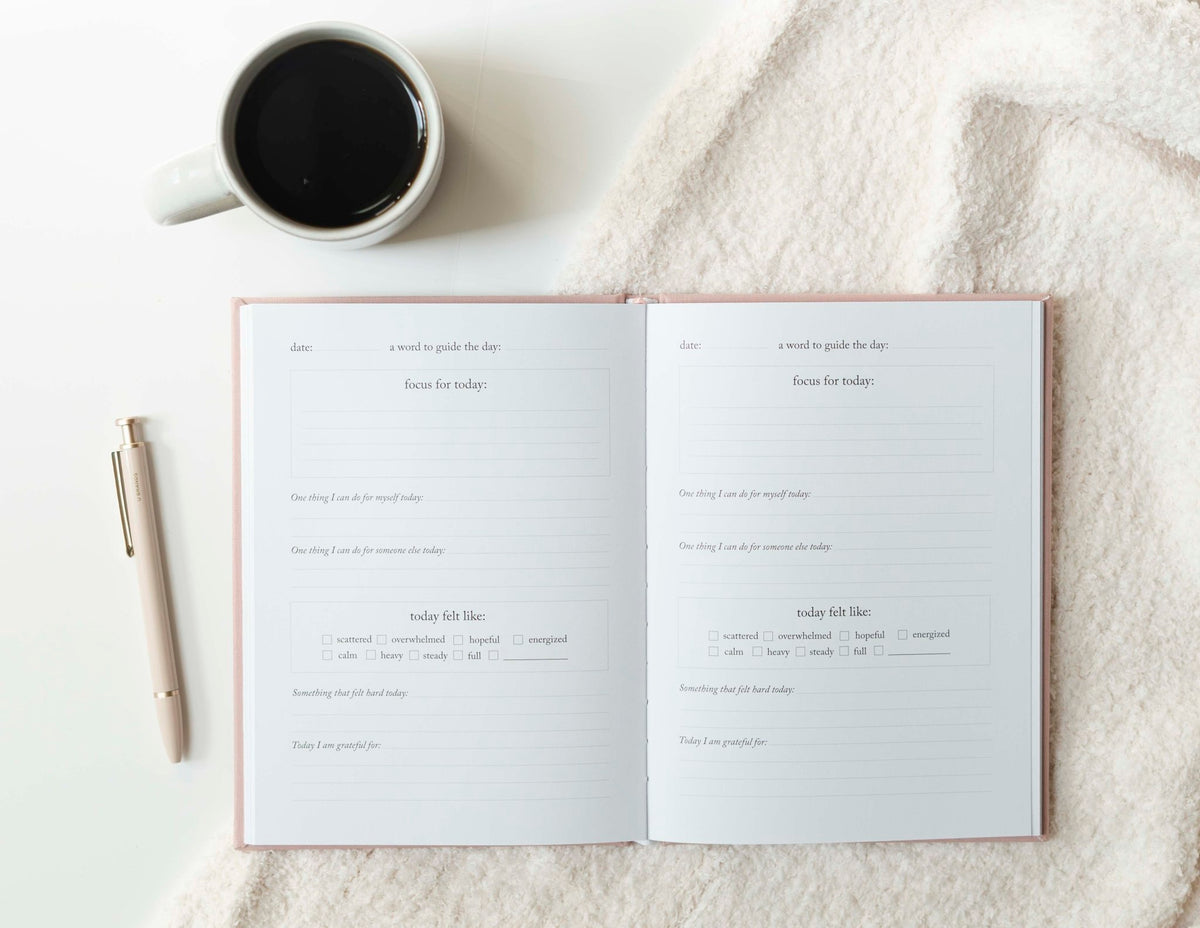 date: a word to guide the day:
focus for today:
One thing I can do for myself today:
One thing I can do for someone else today:
today felt like:
scattered overwhelmed hopeful energized
calm heavy steady full
Something that felt hard today:
Today I am grateful for:
date: a word to guide the day:
focus for today:
One thing I can do for myself today:
One thing I can do for someone else today:
today felt like:
scattered overwhelmed hopeful energized
calm heavy steady full
Something that felt hard today:
Today I am grateful for: